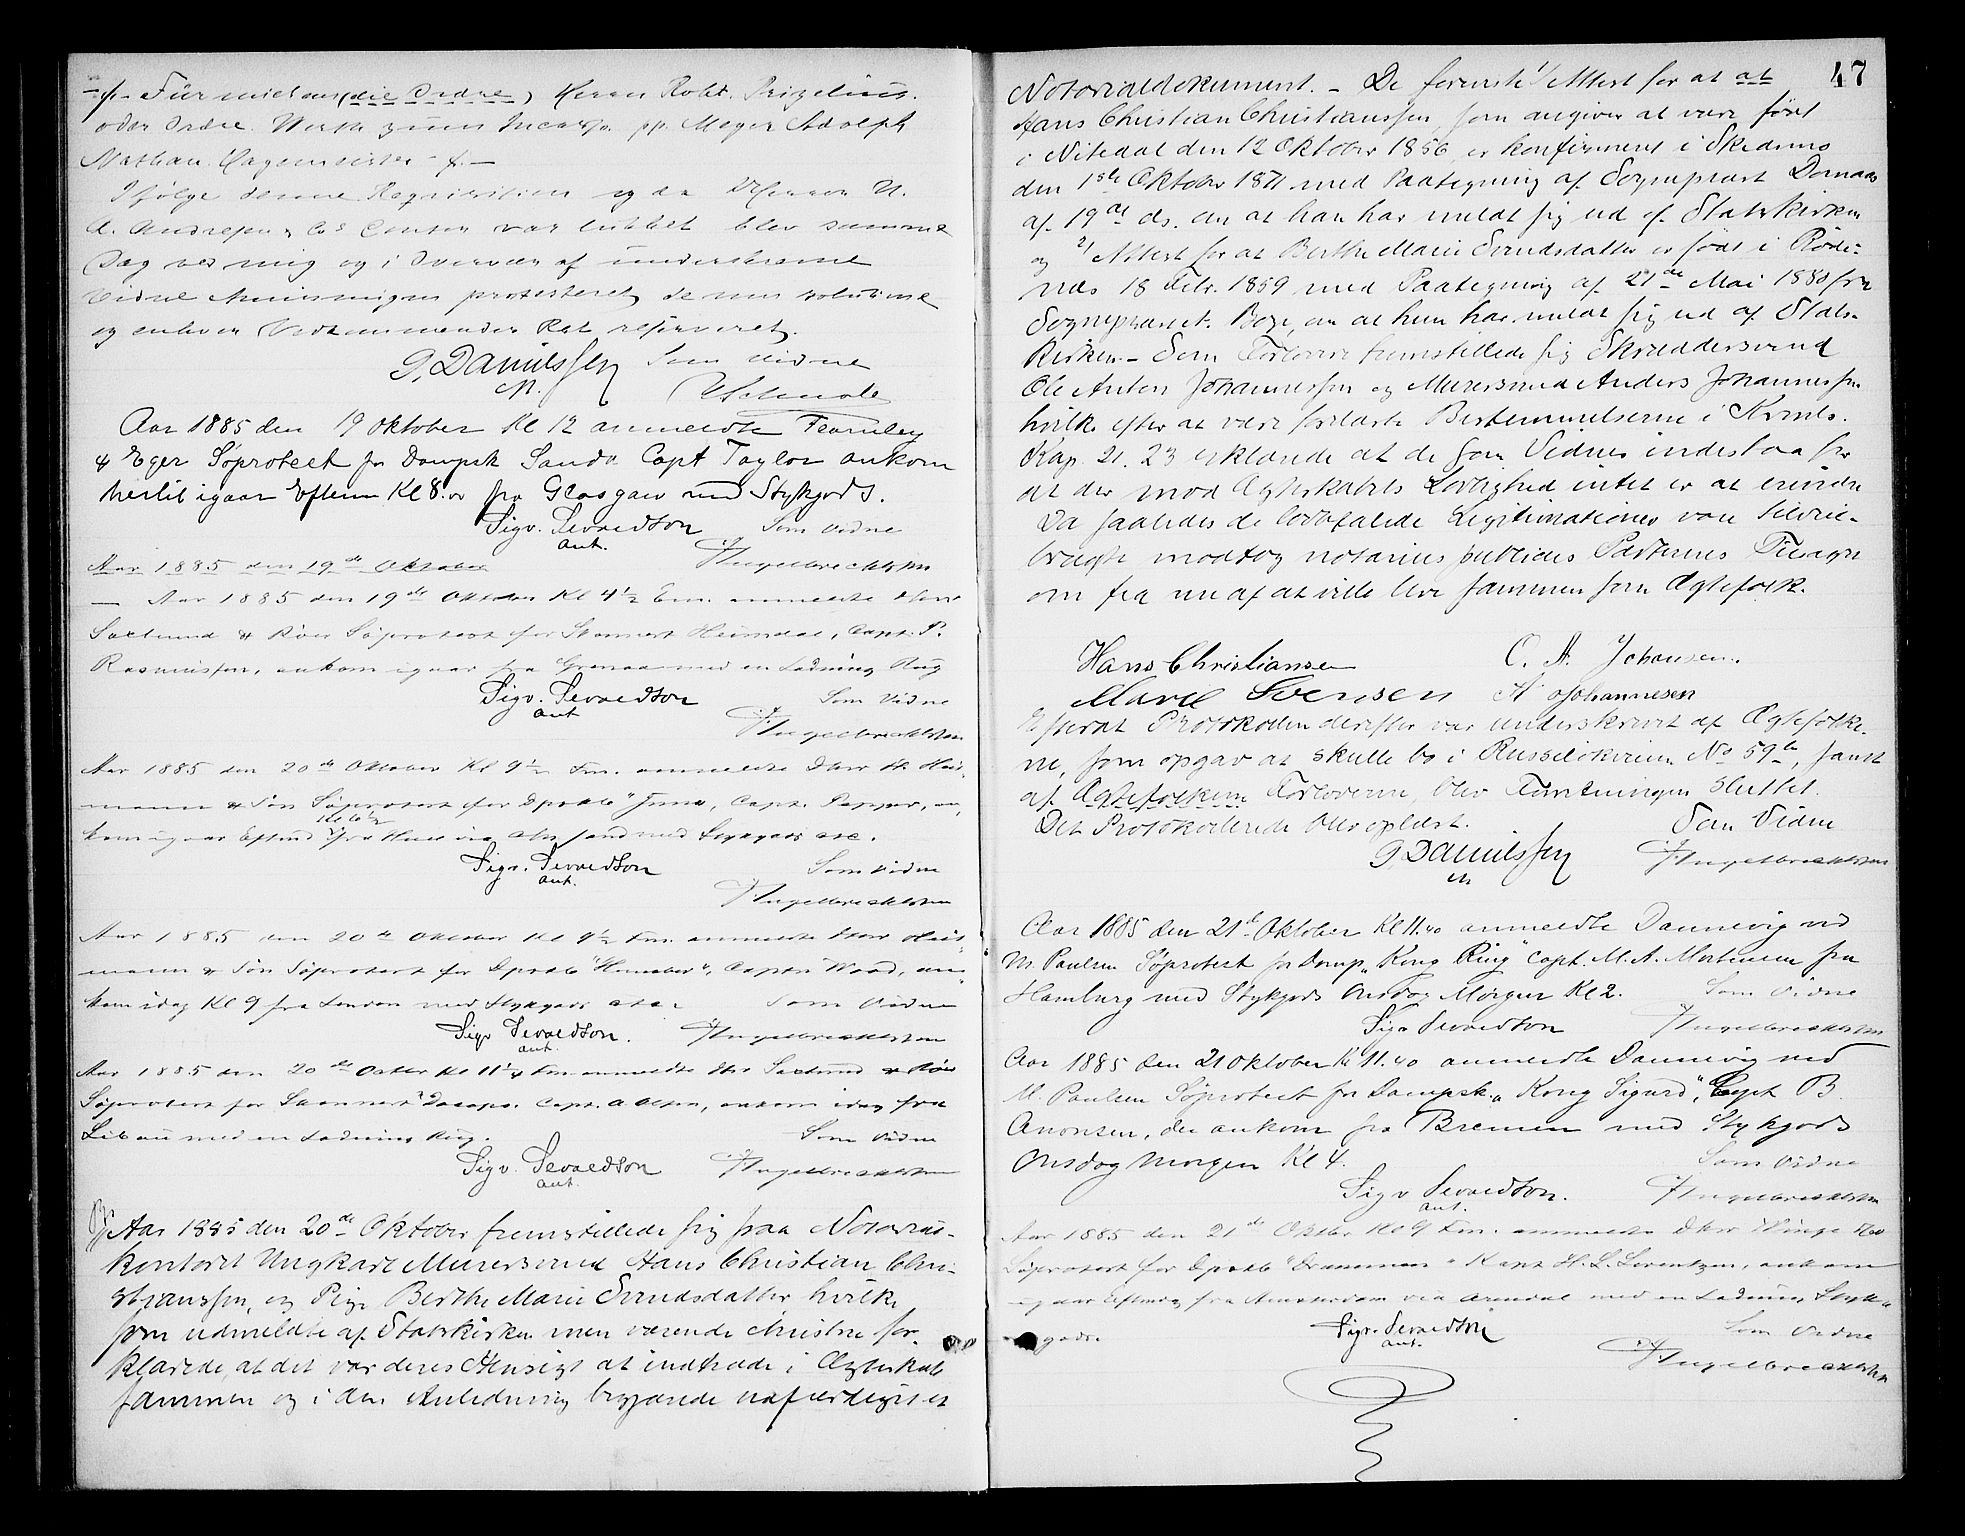 -/- Für mich an (die Ordre) Herrn Robt. Prizelius.
oder Ordre. Werth zum Incasso pp. Meyer Adolph
Nathan -/-
Ifølge denne Requisition og da DHerrer N.
A. Andresen & Co's Contor var lukket blev samme
Dag ved mig og i Overvær af underskrevne
Vidne Anvisningen protesteret de non solutione
og enhver Vedkommendes Ret reserveret.
G. Danielssen Som Vidne
cst.
Aar 1885 den 19 Oktober Kl 12 anmeldte Fearnley
& Eger Søprotest for Dampsk Sanda Capt Taylor ankom
hertil igaar Efterm Kl 8.00 fra Glasgow med Stykgods.
Sigv. Sevaldson Som Vidne
ant. Ingelbrechtsen
Aar 1885 den 19de Oktober
— Aar 1885 den 19de Oktober Kl 4½ Em. anmeldte Dhrr
Sølund & Søprotest for Skonnert Heimdal, Capt. P.
Rasmussen, ankom igaar fra Grenaa med en Ladning Rug
Sigv. Sevaldson Som Vidne
ant Ingelbrechtsen
Aar 1885 den 20de Oktober Kl 9½ Fm. anmeldte Dhrr H. Hei-
mann & Søn Søprotest for Dpskb "Juno", Capt. Pepper, an-
Kl 6½
kom igaar Eftmd fra Hull via Chr.sand med Stykgods etc.
Sigv. Sevaldson Som Vidne
ant. Ingelbrechtsen
Aar 1885 den 20de Oktober Kl 9½ Fm. anmeldte Dhrr Hei-
mann & Søn Søprotest for Dpskb "Humber", Captn Wood, an-
kom idag Kl 9 fra London med Stykgods etc. Som Vidne
Sigv Sevaldson. Ingelbrechtsen
ant.
Aar 1885 den 20de Oktbr Kl 11¼ Fm. anmeldte Dhrr
Søprotest for Skonnert Capt. A. Olsen, ankom idag fra
Libau med en Ladning Rug. Som Vidne
Sigv. Sevaldson Ingelbrechtsen
ant.
Aar 1885 den 20de Oktober fremstillede sig paa Notarial-
kontoret Ungkarl Murersvend Hans Christian Chri-
stianssen, og Pige Berthe Marie Svendsdatter hvilke
som udmeldte af Statskirken men værende christne for-
klarede, at det var deres Hensigt at indtræde i Ægteskab
sammen og i den Anledning begjærede udfærdiget et
47
Notarialdokument. - De foreviste 1/ Attest for at at
Hans Christian Christianssen, som angiver at være født
i Nitedal den 12 Oktober 1856 er konfirmeret i Skedsmo
den 1ste Oktober 1871 med Paategning af Sogneprest
af 19de ds. om at han har meldt sig ud af Statskirken
og 2/ Attest for at Berthe Marie Svendsdatter er født i Røde-
næs 18 Febr. 1859 med Paategning af 21de Mai 1880 fra
Sognepræst. om at hun har meldt sig ud af Stats-
kirken. - Som Forlovere fremstillede sig Skræddersvend
Ole Anton Johannessen og Murersvend Anders Johannessen
hvilke efter at være forelæste Bestemmelserne i Krimls.
Kap. 21. 23 erklærede at de som Vidner indestaa for
at der mod Ægteskabets Lovlighed intet er at erindre
Da saaledes de lovbefalede Legitimationer vare tilveie-
bragte modtog notarius publicus Parternes Tilsagn
om fra nu af at ville leve sammen som Ægtefolk.
Hans Christiansen O. A. Johansen.
Marie Svensen A Johannesen
Efterat Protokollen derefter var underskrevet af Ægtefolke-
ne, som opgav at skulle bo i Russeløkveien No 59b, samt
af Ægtefolkene Forloverne, blev Forretningen sluttet.
Det Protokollerede blev oplæst. Som Vidne
G. Danielssen Ingelbrechtsen
cst
Aar 1885 den 21de Oktober Kl 11.40 anmeldte Dannevig ved
M. Paulsen Søprotest for Damp. "Kong Ring" Capt. M. A. Mortensen fra
Hamburg med Stykgods Onsdag Morgen Kl 2. Som Vidne
Sigv Sevaldson Ingelbrechtsen
Aar 1885 den 21 Oktober Kl 11.40 anmeldte Dannevig ved
M. Paulsen Søprotest for Dampsk. "Kong Sigurd", Capt B.
Anonsen, der ankom fra Bremen med Stykgods
Onsdag Morgen Kl 4. Som Vidne
Sigv Sevaldson. Ingelbrechtsen
ant.
Aar 1885 den 21de Oktbr Kl 9 Fm. anmeldte Dhrr
Søprotest for Dpskb "Drammen" Kapt H. L. Lorentzen, ankom
igaar Eftmdg fra Amsterdam via Arendal med en Ladning Styk-
gods. Sigv. Sevaldson Som Vidne
ant. Ingelbrechtsen